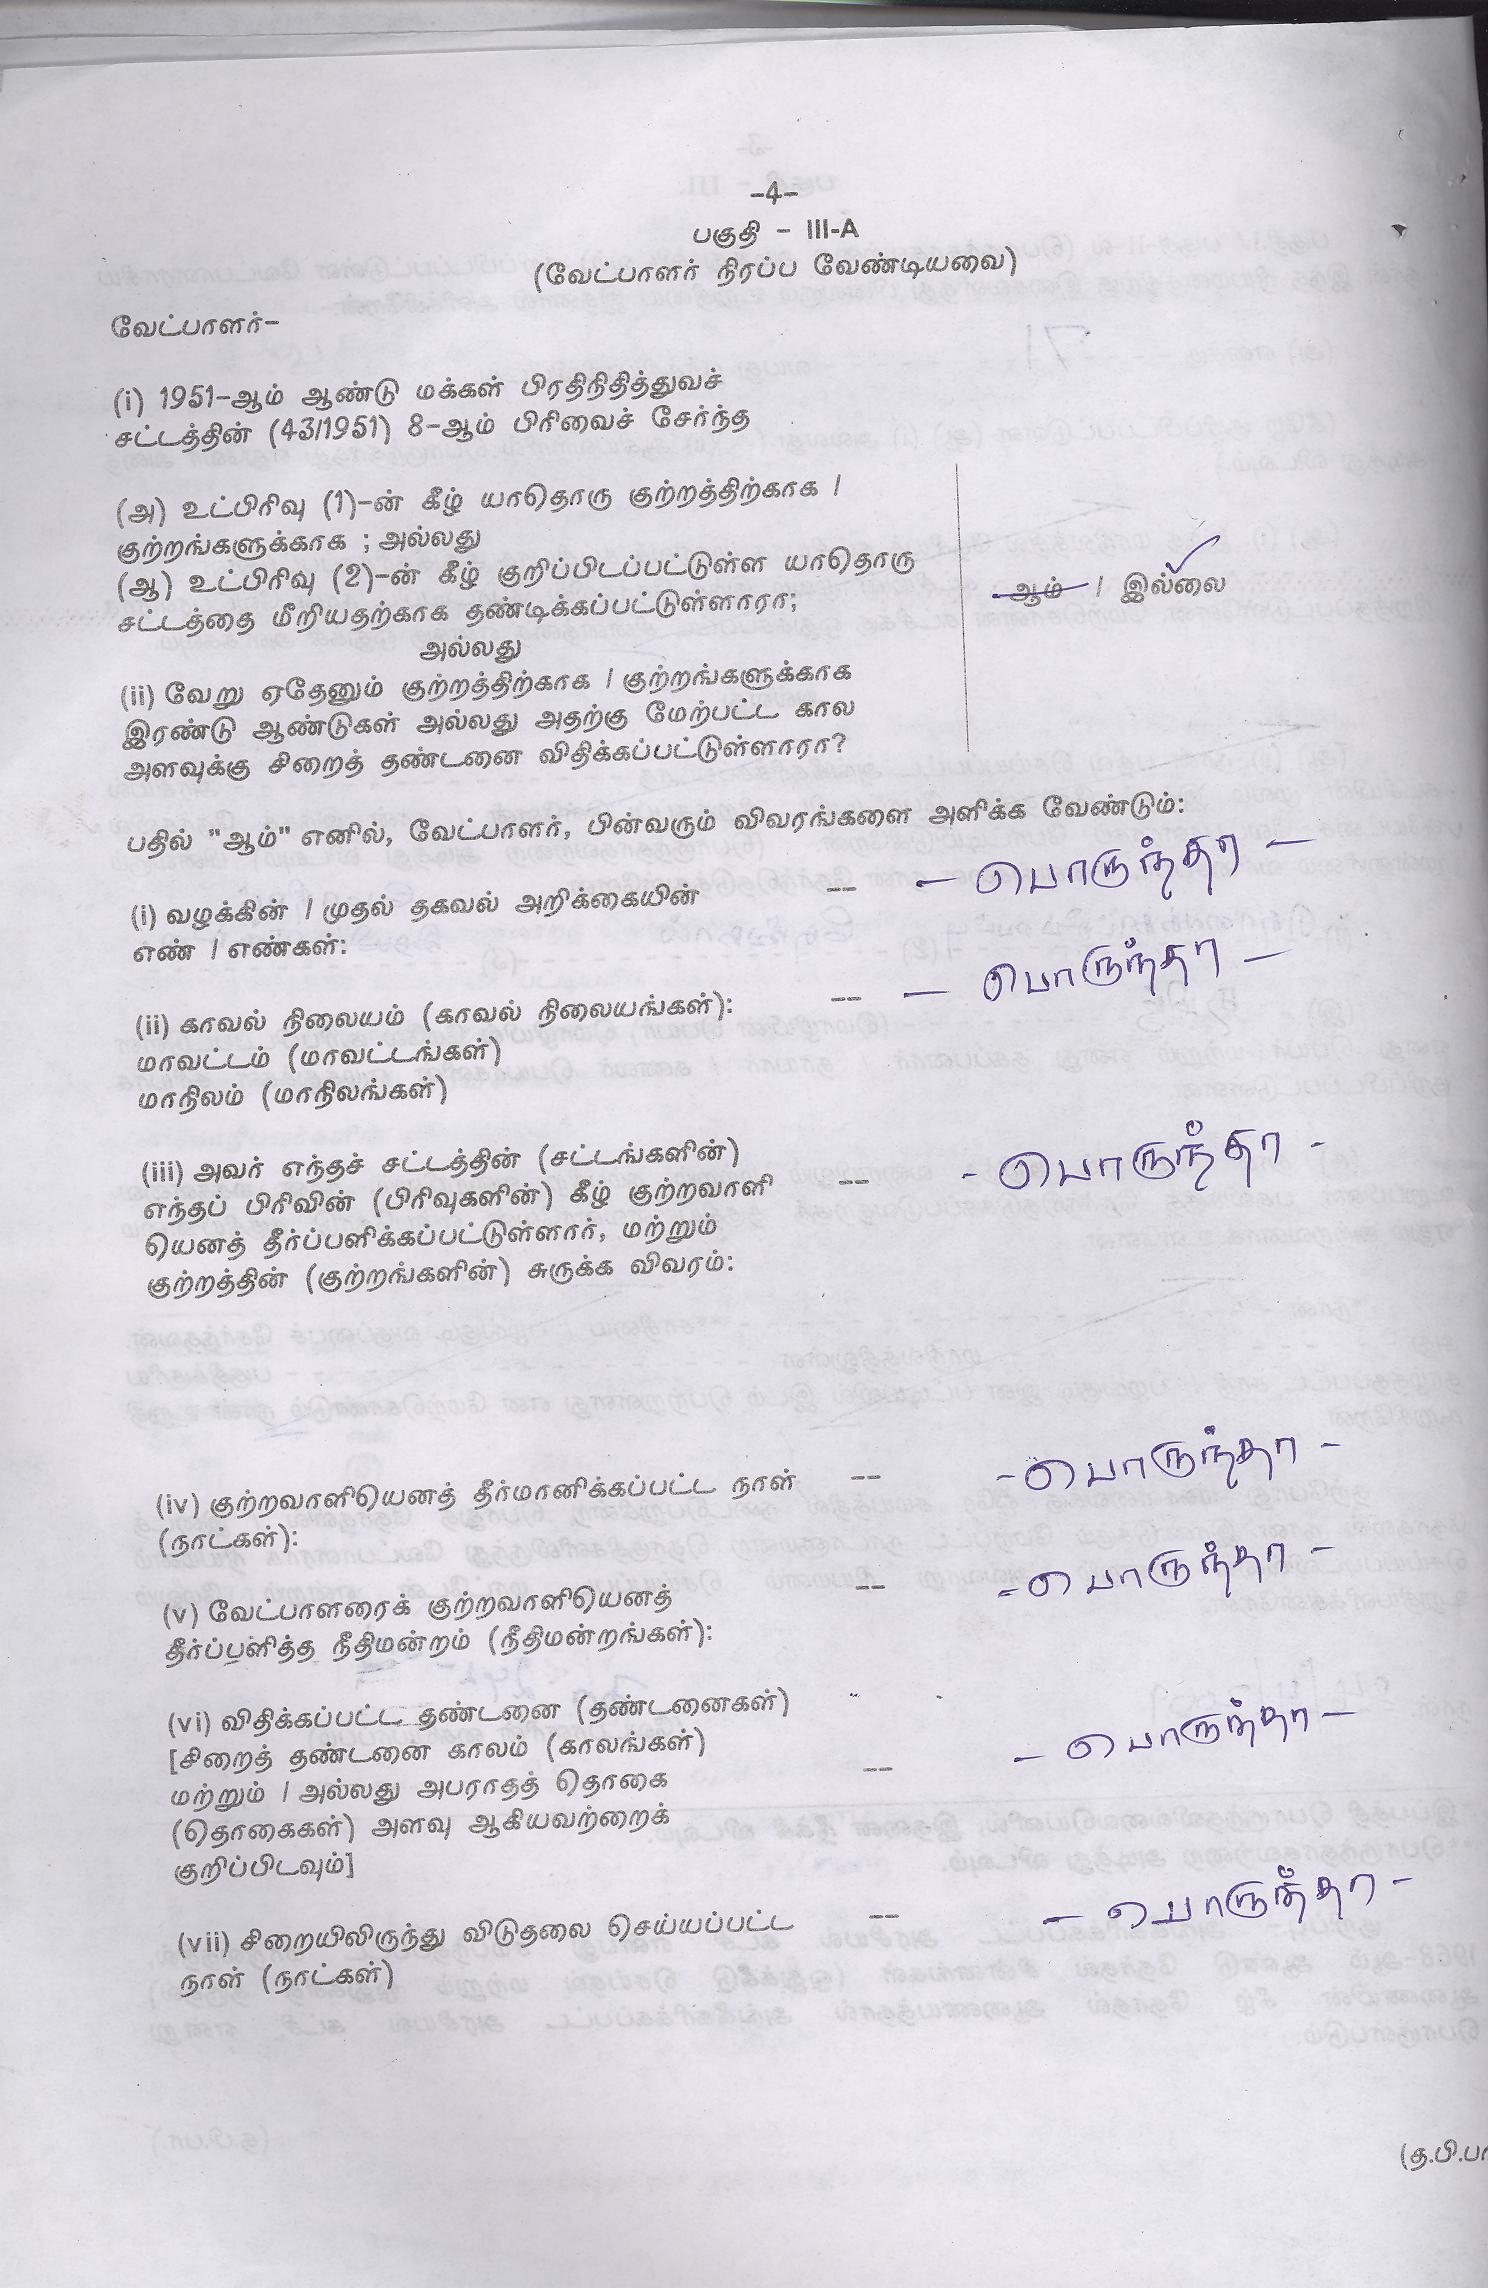 -4-
பகுதி - III-A
(வேட்பாளர் நிரப்ப வேண்டியவை)
வேட்பாளர்-
(i) 1951-ஆம் ஆண்டு மக்கள் பிரதிநிதித்துவச்
சட்டத்தின் (43/1951) 8-ஆம் பிரிவைச் சேர்ந்த
(அ) உட்பிரிவு (1)-ன் கீழ் யாதொரு குற்றத்திற்காக /
குற்றங்களுக்காக ; அல்லது
(ஆ) உட்பிரிவு (2)-ன் கீழ் குறிப்பிடப்பட்டுள்ள யாதொரு
சட்டத்தை மீறியதற்காக தண்டிக்கப்பட்டுள்ளாரா;
ஆம் / இல்லை
அல்லது
(ii) வேறு ஏதேனும் குற்றத்திற்காக / குற்றங்களுக்காக
இரண்டு ஆண்டுகள் அல்லது அதற்கு மேற்பட்ட கால
அளவுக்கு சிறைத் தண்டனை விதிக்கப்பட்டுள்ளாரா?
பதில் "ஆம்" எனில், வேட்பாளர், பின்வரும் விவரங்களை அளிக்க வேண்டும்:
(i) வழக்கின் / முதல் தகவல் அறிக்கையின் -- - பொருந்தா -
எண் / எண்கள்:
(ii) காவல் நிலையம் (காவல் நிலையங்கள்): -- - பொருந்தா -
மாவட்டம் (மாவட்டங்கள்)
மாநிலம் (மாநிலங்கள்)
(iii) அவர் எந்தச் சட்டத்தின் (சட்டங்களின்)
எந்தப் பிரிவின் (பிரிவுகளின்) கீழ் குற்றவாளி -- - பொருந்தா -
யெனத் தீர்ப்பளிக்கப்பட்டுள்ளார், மற்றும்
குற்றத்தின் (குற்றங்களின்) சுருக்க விவரம்:
(iv) குற்றவாளியெனத் தீர்மானிக்கப்பட்ட நாள் -- - பொருந்தா -
(நாட்கள்):
(v) வேட்பாளரைக் குற்றவாளியெனத் -- - பொருந்தா -
தீர்ப்பளித்த நீதிமன்றம் (நீதிமன்றங்கள்):
(vi) விதிக்கப்பட்ட தண்டனை (தண்டனைகள்)
[சிறைத் தண்டனை காலம் (காலங்கள்) - பொருந்தா -
மற்றும் / அல்லது அபராதத் தொகை --
(தொகைகள்) அளவு ஆகியவற்றைக்
குறிப்பிடவும்]
(vii) சிறையிலிருந்து விடுதலை செய்யப்பட்ட -- - பொருந்தா -
நாள் (நாட்கள்)
(த.பி.பா